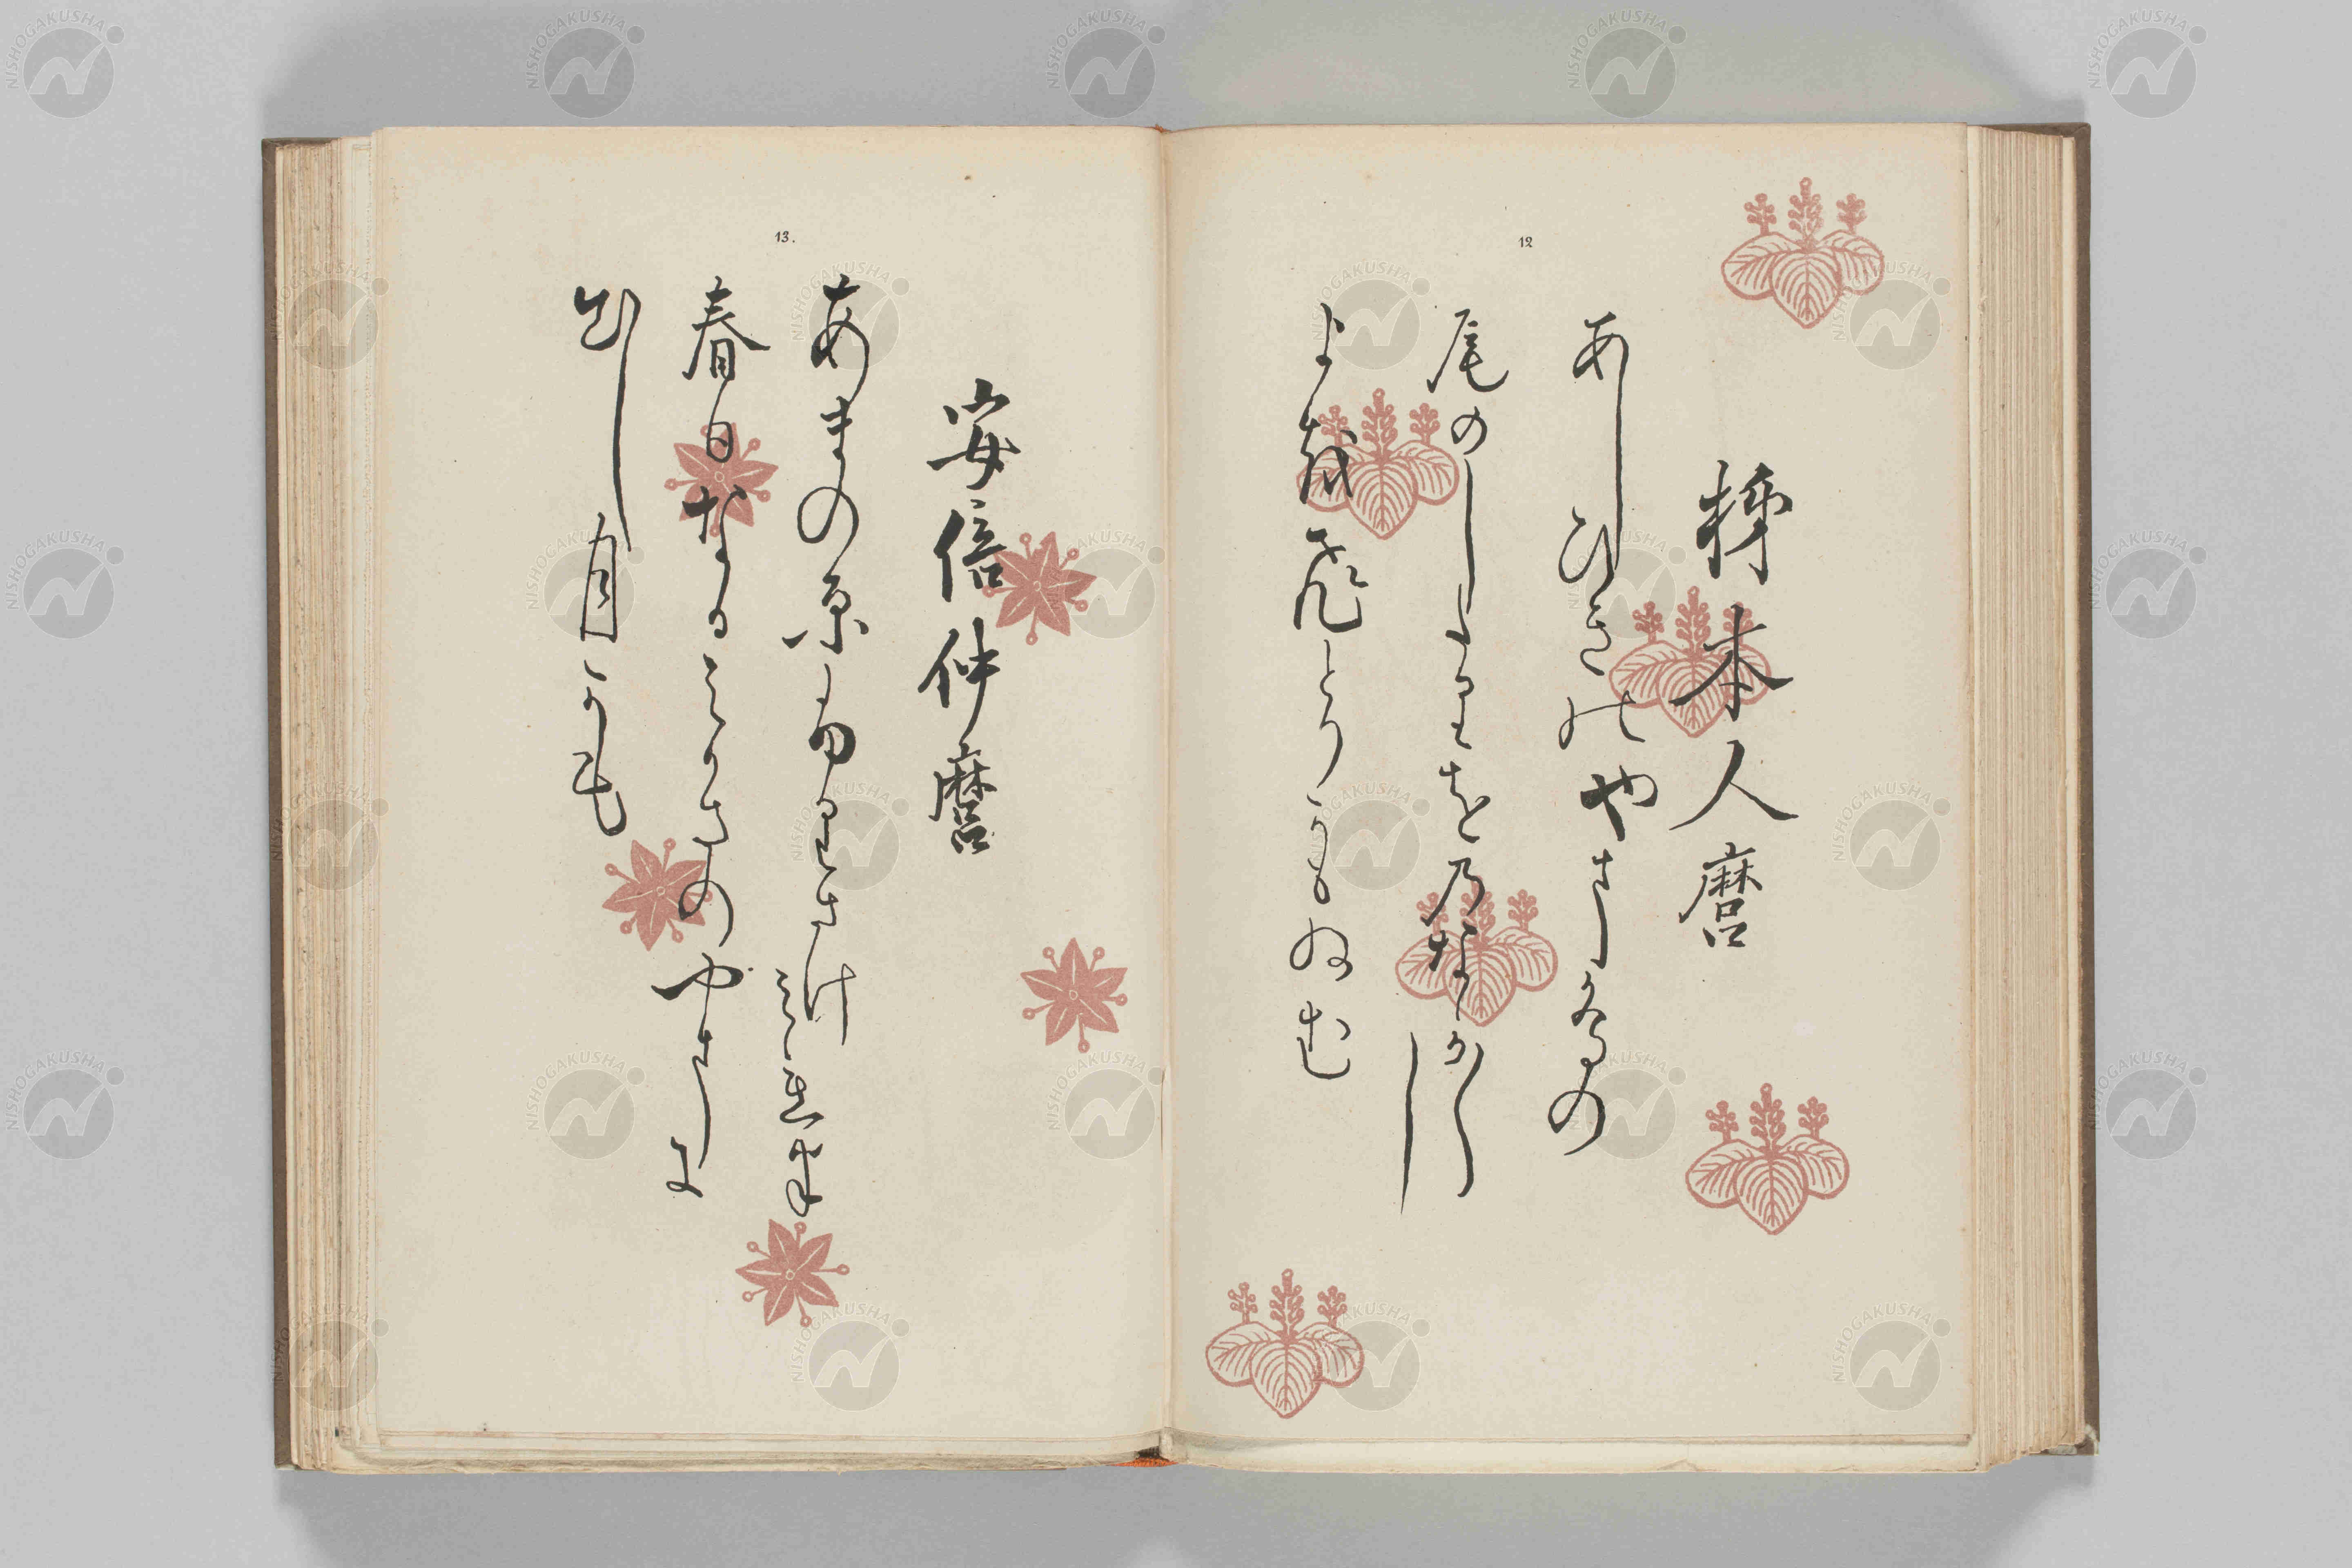 12
柿本人麿
あしひきのやまとりの
尾のしたりをのなか〱し
よを飛とりかもねむ
13.
安倍仲麿
あまの原ふりさけみれは
春日なるみかさのやまに
出し月かも
NISHOGAKUSHA